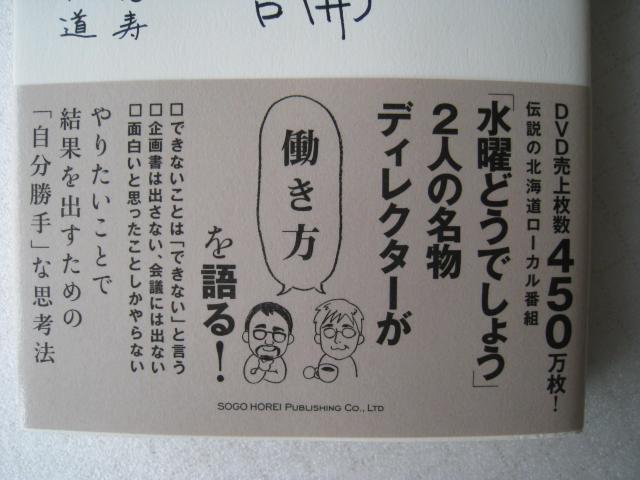 DVD売上枚数450万枚！
伝説の北海道ローカル番組
「水曜どうでしょう」
2人の名物
ディレクターが
働き方
を語る！
□できないことは「できない」と言う
□企画書は出さない、会議には出ない
□面白いと思ったことしかやらない
やりたいことで
結果を出すための
「自分勝手」な思考法
SOGO HOREI PUBLISHING CO., LTD
寿
道